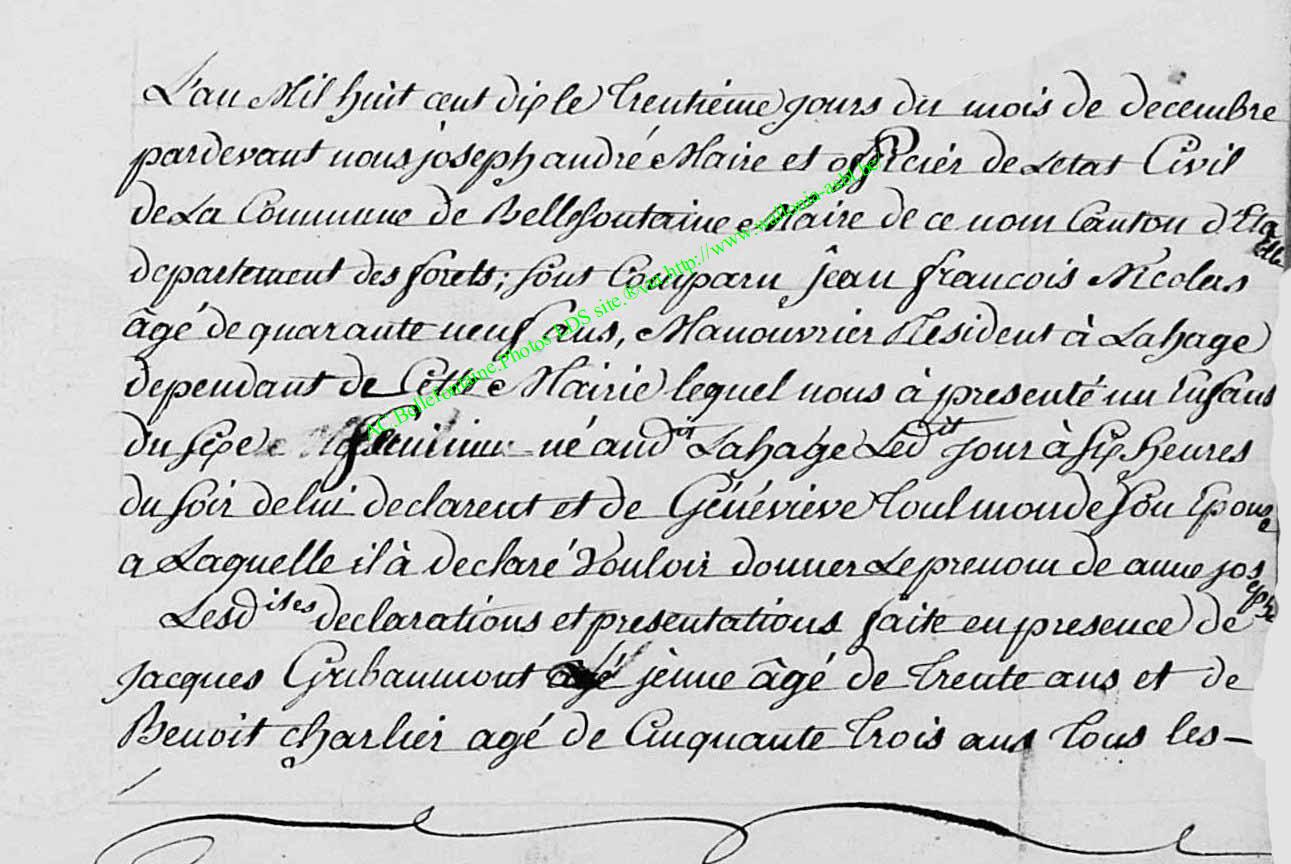 L'an Mil huit cent dix le Trentiéme jours du mois de decembre
pardevant nous joseph andré Maire et officiér de Letat Civil
de La Commune de Bellefontaine Mairie de ce nom Canton d'Etalle
departement des forets; sont Comparu jean francois Nicolas
âgé de quarante neuf ans, Manouvrier Résident à Lahage
dependant de Cette Mairie lequel nous à présenté un Enfans
du sexe feminin né aud.it Lahage Led.it jour à six heures
du soir de lui declarent et de Généviéve Toulmonde son Epouse
a Laquelle il à declaré Vouloir donner Le prenom de anne joseph
Lesd.ites declarations et presentations faite en presence de
Jacques Gribaumont jeune âgé de Trente ans et de
Benoit charlier agé de Cinquante Trois ans Tous les –
AC.Bellefontaine.Photos LDS site.®via http://www.wallonia-asbl.be/